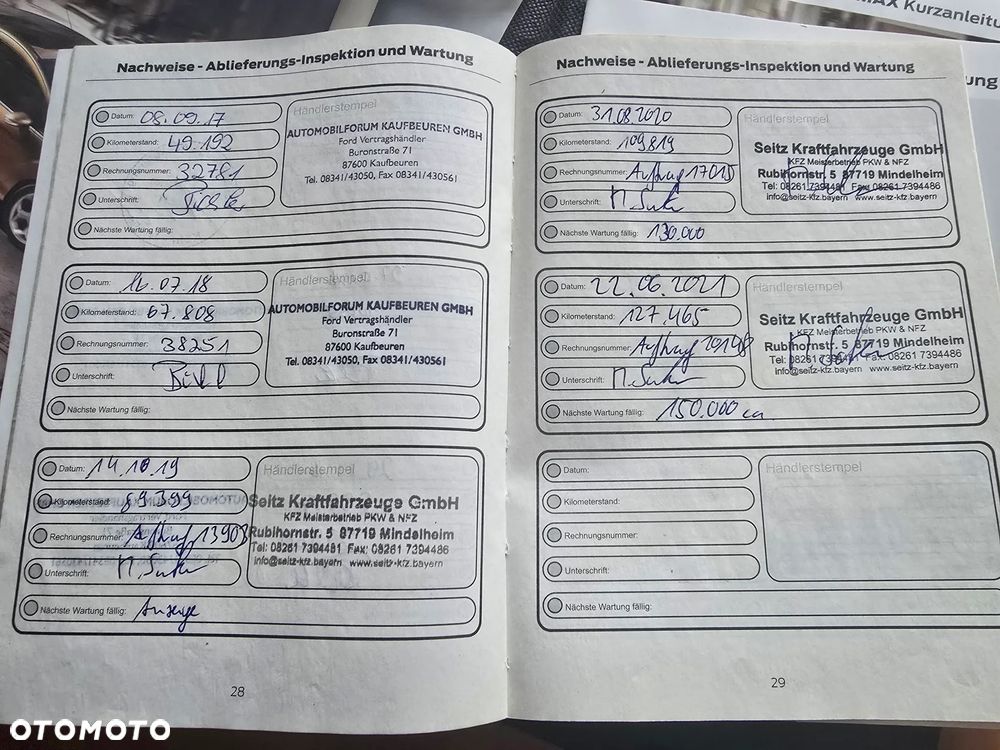 MAX Kurzanleitu
ung
Nachweise - Ablieferungs-Inspektion und Wartung
Datum: 08.09.17
Kilometerstand: 49.192
Rechnungsnummer: 32781
Unterschrift:
Nächste Wartung fällig:
Händlerstempel
AUTOMOBILFORUM KAUFBEUREN GMBH
Ford Vertragshändler
Buronstraße 71
87600 Kaufbeuren
Tel. 08341/43050, Fax 08341/430561
Datum: 16.07.18
Kilometerstand: 67.808
Rechnungsnummer: 38251
Unterschrift:
Nächste Wartung fällig:
Händlerstempel
AUTOMOBILFORUM KAUFBEUREN GMBH
Ford Vertragshändler
Buronstraße 71
87600 Kaufbeuren
Tel. 08341/43050, Fax 08341/430561
Datum: 14.10.19
Kilometerstand: 89.399
Rechnungsnummer: Auftrag 13903
Unterschrift:
Nächste Wartung fällig: Anzeige
Händlerstempel
Seitz Kraftfahrzeuge GmbH
KFZ Meisterbetrieb PKW & NFZ
Rubihornstr. 5 87719 Mindelheim
Tel: 08261 7394481 Fax: 08261 7394486
info@seitz-kfz.bayern www.seitz-kfz.bayern
28
Nachweise - Ablieferungs-Inspektion und Wartung
Datum: 31.08.2020
Kilometerstand: 109819
Rechnungsnummer: Auftrag 17015
Unterschrift:
Nächste Wartung fällig: 130.000
Händlerstempel
Seitz Kraftfahrzeuge GmbH
KFZ Meisterbetrieb PKW & NFZ
Rubihornstr. 5 87719 Mindelheim
Tel: 08261 7394481 Fax: 08261 7394486
info@seitz-kfz.bayern www.seitz-kfz.bayern
Datum: 22.06.2021
Kilometerstand: 127.465
Rechnungsnummer: Auftrag 20148
Unterschrift:
Nächste Wartung fällig: 150.000 ca.
Händlerstempel
Seitz Kraftfahrzeuge GmbH
KFZ Meisterbetrieb PKW & NFZ
Rubihornstr. 5 87719 Mindelheim
Tel: 08261 Fax: 08261 7394486
info@seitz-kfz.bayern www.seitz-kfz.bayern
Datum:
Kilometerstand:
Rechnungsnummer:
Unterschrift:
Nächste Wartung fällig:
Händlerstempel
29
OTOMOTO